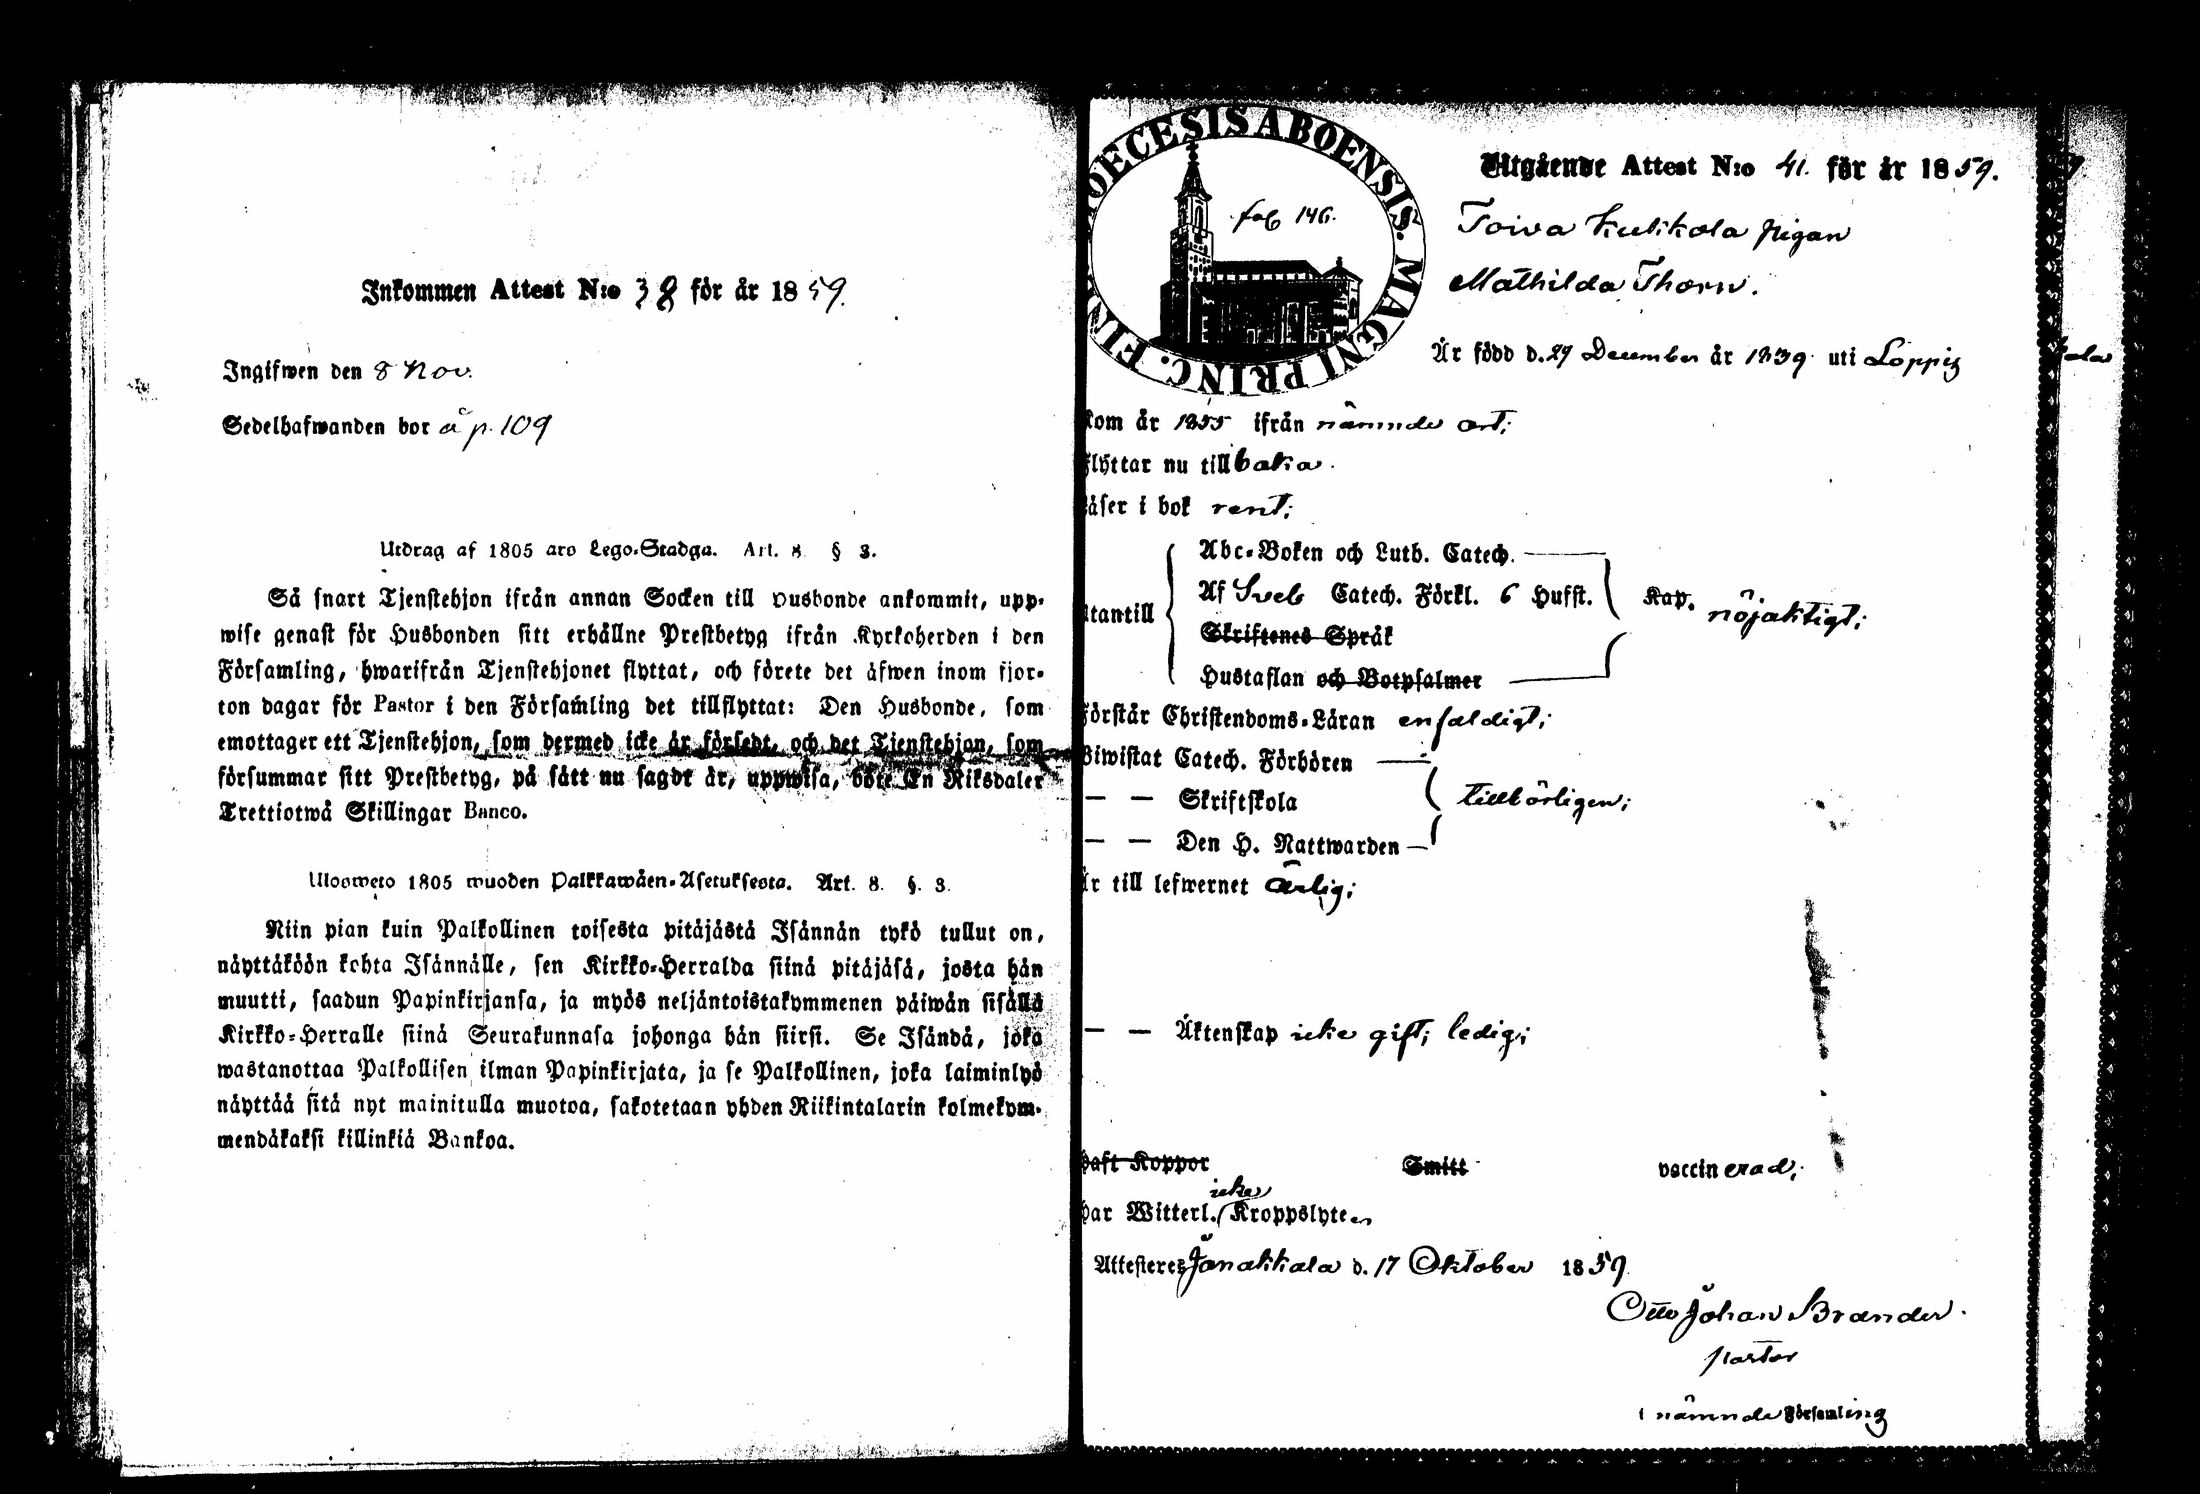 Inkommen Attest N:o 38 för år 1859.
Ingifwen den 8 Nov.
Sedelhafwanden bor å p. 109
Utdrag af 1805 ars Lego-Stadga. Art. 8 § 3.
Så snart Tjenstehjon ifrån annan Socken till Husbonde ankommit, upp-
wise genast för Husbonden sitt erhållne Prestbetyg ifrån Kyrkoherden i den
Församling, hwarifrån Tjenstehjonet flyttat, och förete det äfwen inom fjor-
ton dagar för Pastor i den Församling det tillflyttat: Den Husbonde, som
emottager ett Tjenstehjon, som dermed icke är försedt, och det Tjenstehjon, som
försummar sitt Prestbetyg, på sätt nu sagdt är, uppwisa, böte En Riksdaler
Trettiotwå Skillingar Banco.
Ulosweto 1805 wuoden Palkkawäen-Asetuksesta. Art. 8. §. 3.
Niin pian kuin Palkollinen toisesta pitäjästä Isännän tykö tullut on,
näyttäköön kohta Isännälle, sen Kirkko-Herralda siinä pitäjäsä, josta hän
muutti, saadun Papinkirjansa, ja myös neljäntoistakymmenen päiwän sisällä
Kirkko-Herralle siinä Seurakunnasa johonga hän siirsi. Se Isändä, joka
wastanottaa Palkollisen ilman Papinkirjata, ja se Palkollinen, joka laiminlyö
näyttää sitä nyt mainitulla muotoa, sakotetaan yhden Riikintalarin kolmekym-
mendäkaksi killinkiä Bankoa.
DIOECESIS ABOENSIS. MAGNI PRINC. FINL
fol 146.
Utgående Attest N:o 41. för år 1859.
Toiva Kukkola pigan
Mathilda Thorn.
Är född d. 29 December år 1839 uti Loppis
Kom år 1855 ifrån nämnde ort;
flyttar nu tillbaka.
läser i bok rent;
utantill Abc-Boken och Luth. Catech.
Af Sveb Catech. Förkl. 6 Hufst. Kap. nöjaktigt;
Skriftenes Språk
Hustaflan och Botpsalmer
förstår Christendoms-Läran enfaldigt;
Biwistat Catech. Förhören
— — Skriftskola tillbörligen;
— — Den H. Nattwarden
Är till lefwernet ärlig;
— — Äktenskap icke gift; ledig;
haft Koppor Smitt vaccinerad;
icke
har Witterl. Kroppslyten
Attesteres Janakkala d. 17 Oktober 1859
Otto Johan Brander.
pastor
i nämnde Församling